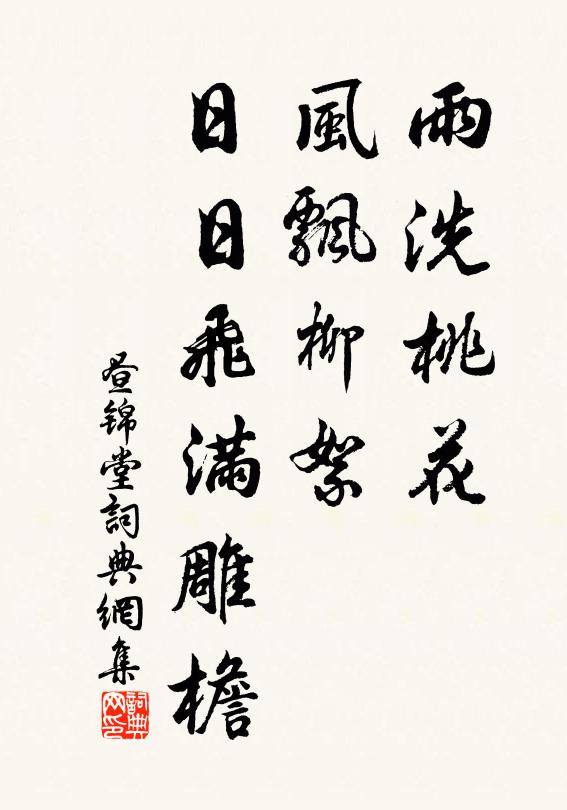 雨洗桃花
風飄柳絮
日日飛滿雕檐
昼锦堂詞典網集
詞典網印